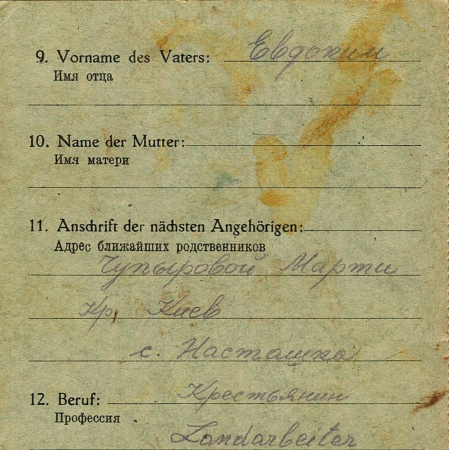 9. Vorname des Vaters: Евдоким
Имя отца
10. Name der Mutter:
Имя матери
11. Anschrift der nächsten Angehörigen:
Адрес ближайших родственников
Чупыровой Марти
Кр. Киев
с. Насташка
12. Beruf: Крестьянин
Профессия
Landarbeiter